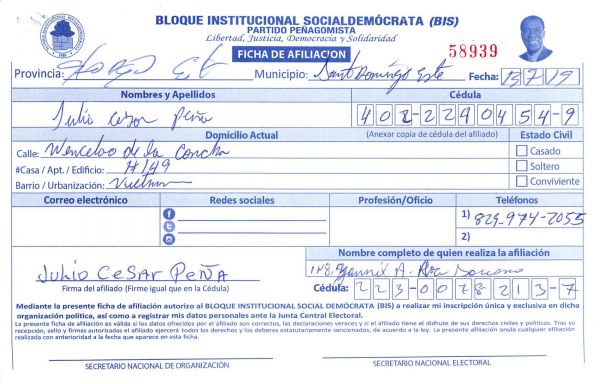 BLOQUE INSTITUCIONAL SOCIALDEMÓCRATA (BIS)
PARTIDO PEÑAGOMISTA
Libertad, Justicia, Democracia y Solidaridad
FICHA DE AFILIACION
58939
Provincia:
Municipio: Santo Domingo Este
Fecha: 13/7/19
Nombres y Apellidos
Cédula
Julio Cesar Peña
402-2290454-9
Domicilio Actual
(Anexar copia de cédula del afiliado)
Estado Civil
Calle: Wenceloo de la Concha
Casado
#Casa / Apt. / Edificio: #149
Soltero
Barrio / Urbanización:
Conviviente
Correo electrónico
Redes sociales
Profesión/Oficio
Teléfonos
1) 829-974-2055
2)
Nombre completo de quien realiza la afiliación
JULIO CESAR PEÑA
Yannix A.
Firma del afiliado (Firme igual que en la Cédula)
Cédula: 223-0078213-7
Mediante la presente ficha de afiliación autorizo al BLOQUE INSTITUCIONAL SOCIAL DEMÓCRATA (BIS) a realizar mi inscripción única y exclusiva en dicha
organización política, así como a registrar mis datos personales ante la Junta Central Electoral.
La presente ficha de afiliación es válida si los datos ofrecidos por el afiliado son correctos, las declaraciones veraces y si el afiliado tiene el disfrute de sus derechos civiles y políticos. Tras su
recepción, sello y firmas autorizadas el afiliado ejercerá todos los derechos y los deberes estatutariamente consagrados, de acuerdo a la ley. La presente afiliación anula cualquier afiliación
realizada con anterioridad a la fecha que aparece en esta ficha.
SECRETARIO NACIONAL DE ORGANIZACIÓN
SECRETARIO NACIONAL ELECTORAL